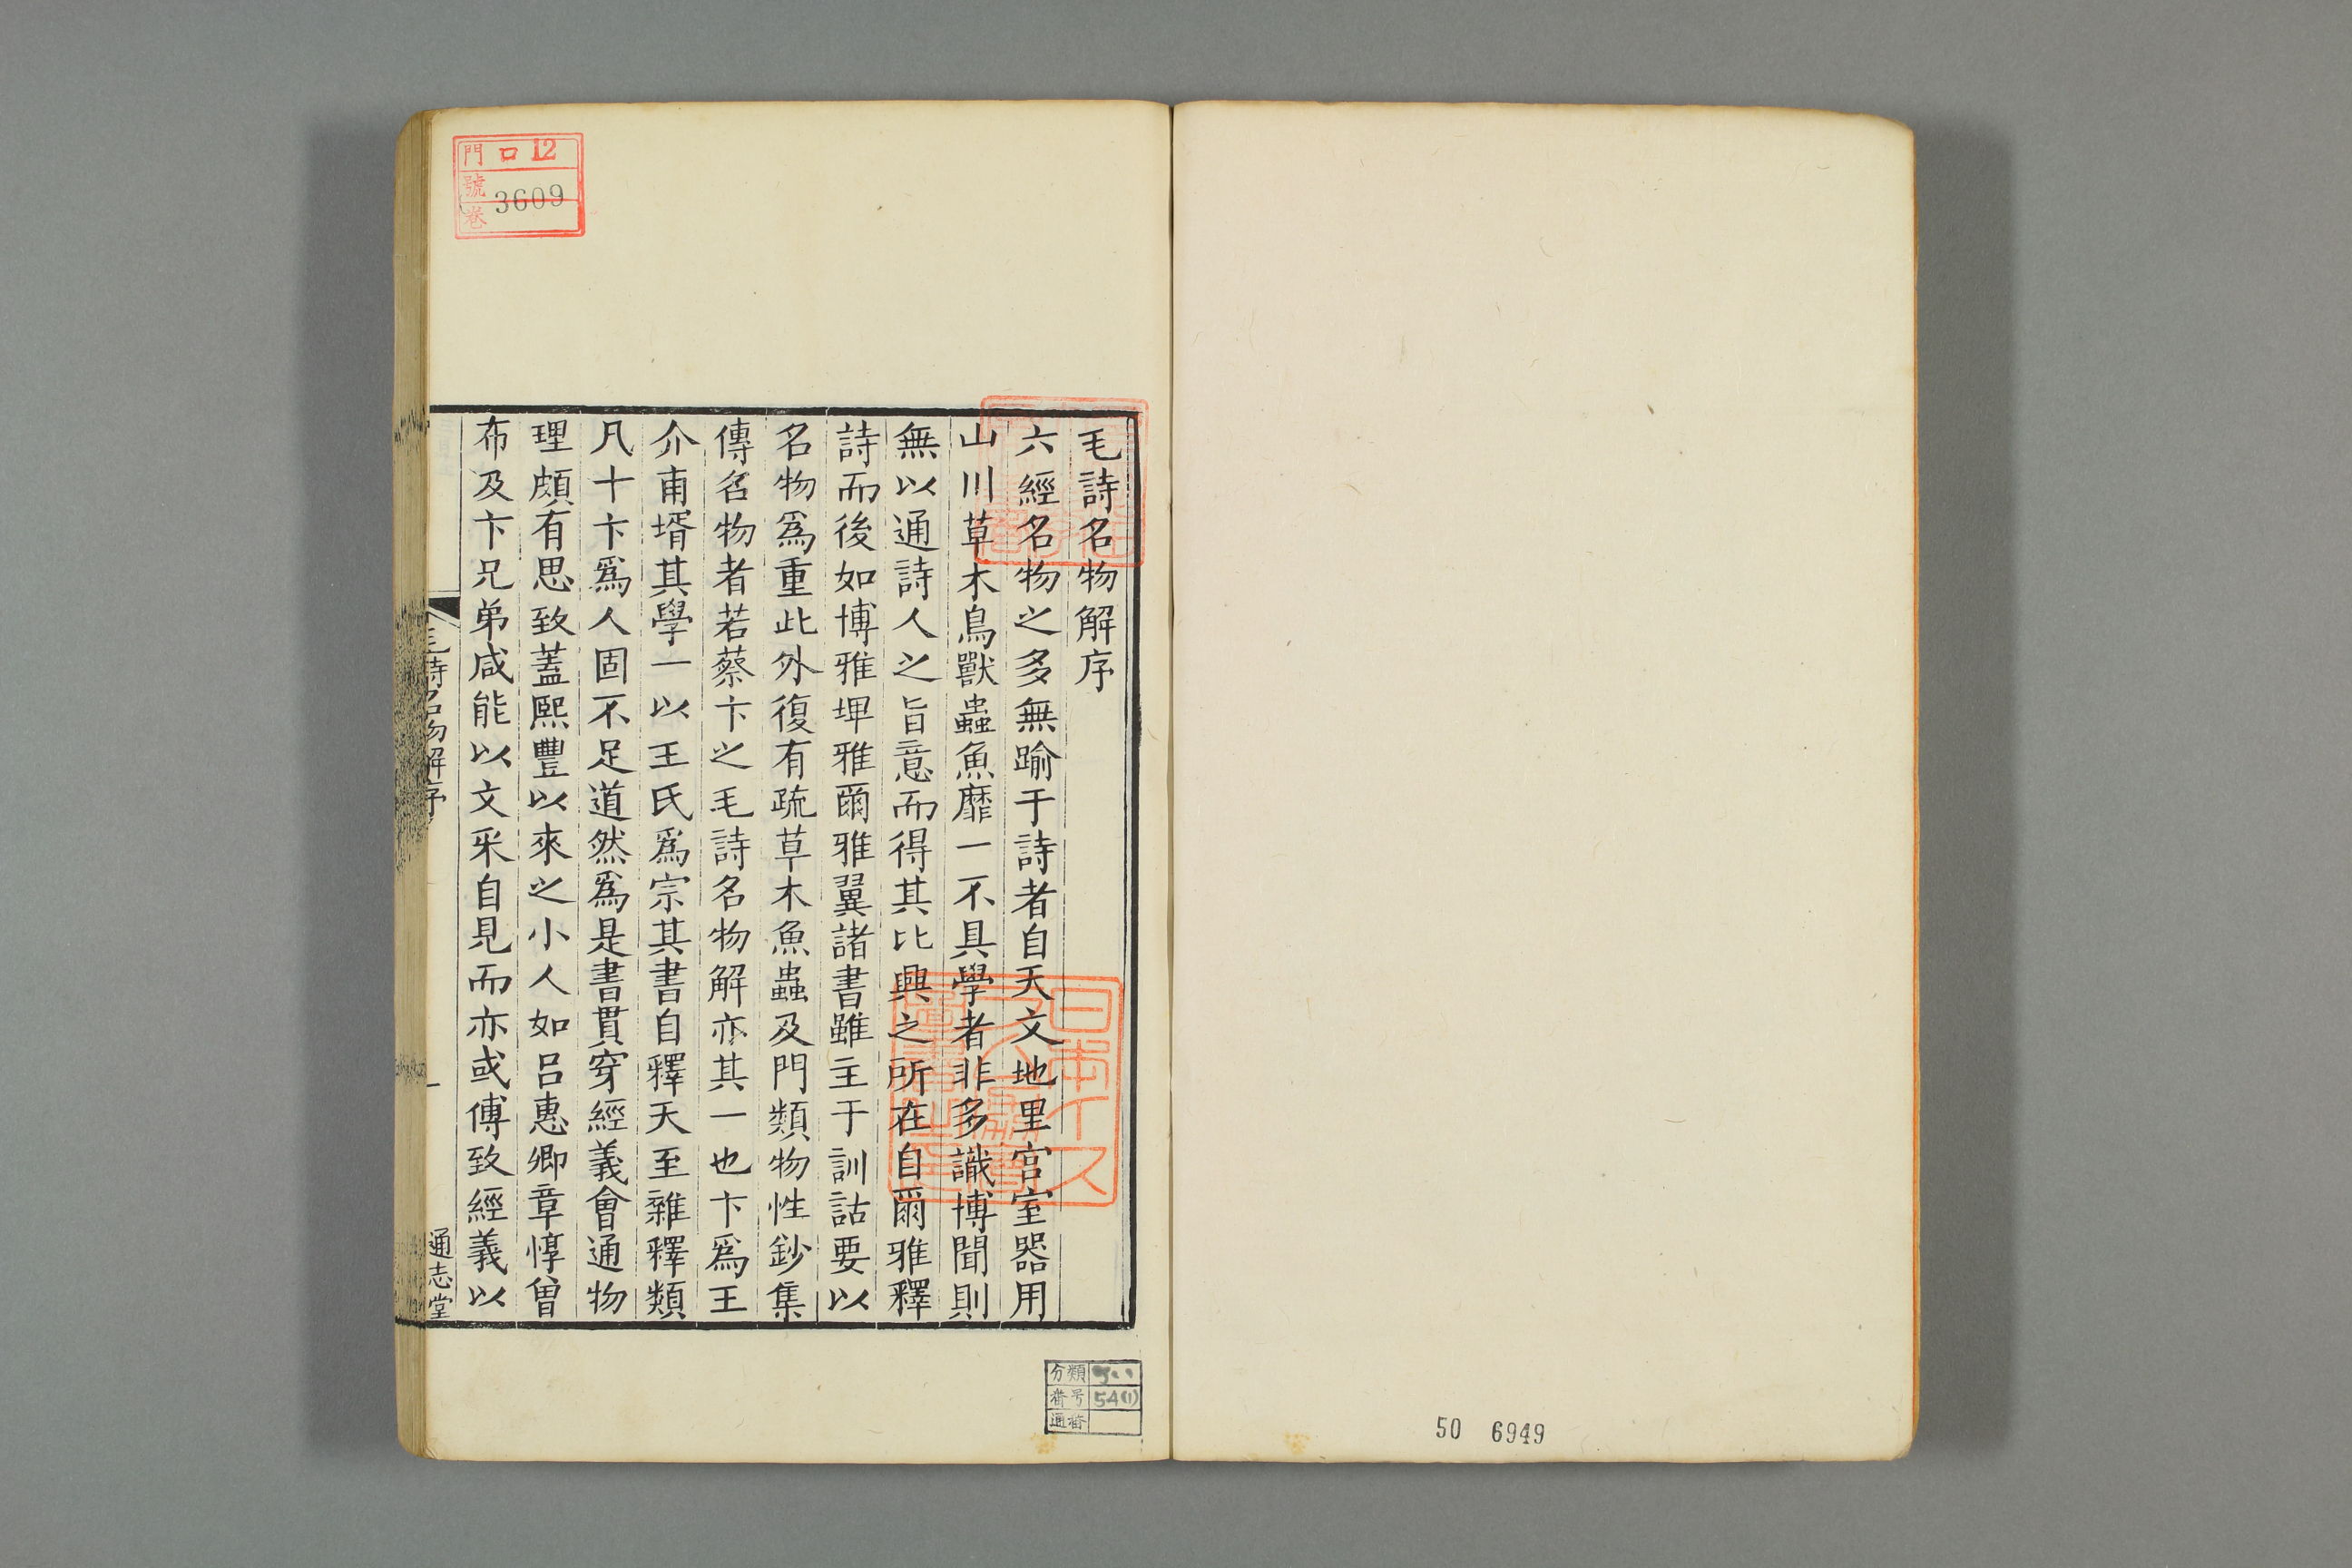 毛詩名物解序
六經名物之多無踰于詩者自天文地里宫室器用
山川草木鳥獸蟲魚靡一不具學者非多識博聞則
無以通詩人之旨意而得其比興之所在自爾雅釋
詩而後如博雅埤雅爾雅翼諸書雖主于訓詁要以
名物爲重此外復有疏草木魚蟲及門類物性鈔集
傳名物者若蔡卞之毛詩名物解亦其一也卞爲王
介甫壻其學一以王氏爲宗其書自釋天至雜釋類
凡十卞爲人固不足道然爲是書貫穿經義會通物
理頗有思致蓋熙豐以來之小人如吕惠卿章惇曾
布及卞兄弟咸能以文采自見而亦或傅致經義以
毛詩名物解序
一
通志堂
門 口12
號 3609
卷
分類
番号 54(1)
通番
50 6949